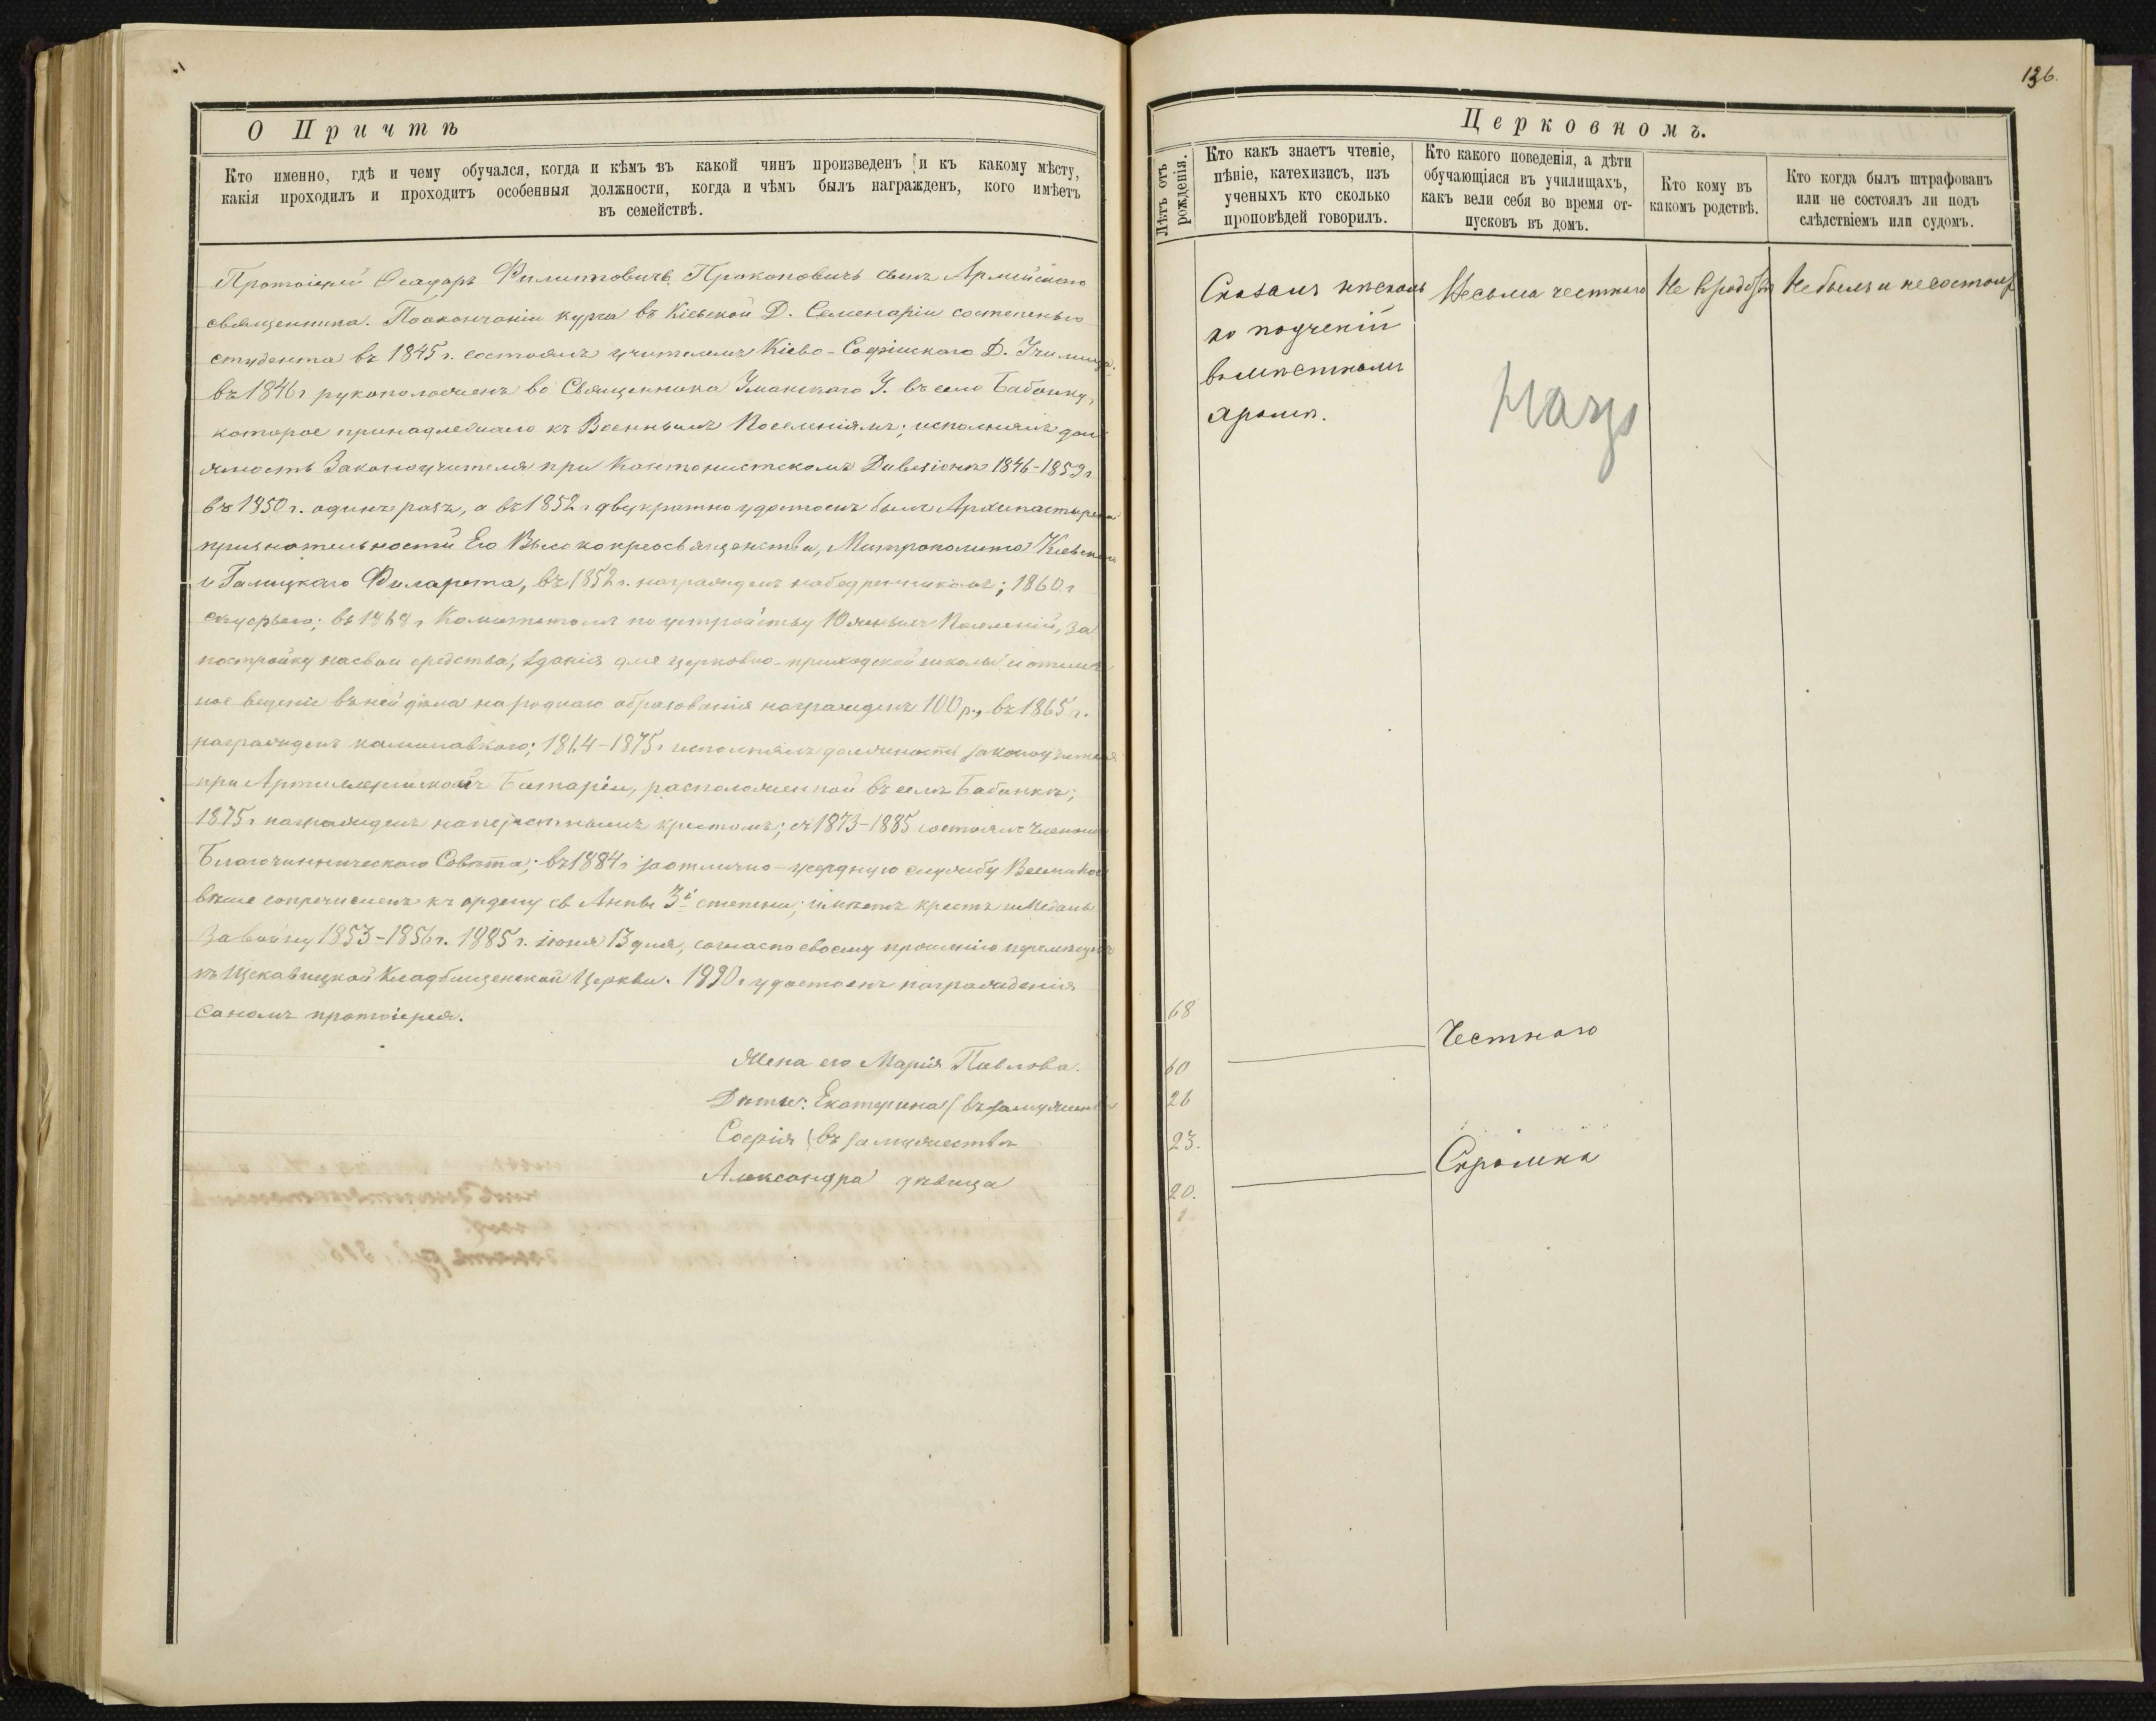 О Причтѣ
Кто именно, гдѣ и чему обучался, когда и кѣмъ въ какой чинъ произведенъ и къ какому мѣсту,
какія проходилъ и проходитъ особенныя должности, когда и чѣмъ былъ награжденъ, кого имѣетъ
въ семействѣ.
Протоіерей Ѳеодоръ Прокоповичъ сынъ Армейскаго
священника. По окончаніи курса въ Кіевской Д. Семенаріи со степенью
студента въ 1845 г. состоялъ учителемъ Кіево-Софійскаго Д. Училища.
въ 1846 г рукоположенъ во Священника Уманскаго У. въ село Бабанку,
которое принадлежало къ Военнымъ Поселеніямъ; исполнялъ дол
жность Законоучителя при Кантонистскомъ Дивизіонѣ 1846-1859 г
въ 1850 г. одинъ разъ, а въ 1852 г двукратно удостоенъ былъ Архипастырской
признательности Его Высокопреосвященства, Митрополита Кіевскаго
и Галицкаго Филарета, въ 1852 г. награжденъ набедренникомъ; 1860 г
скуфьею; въ 1868 г Комитетомъ по устройству Южныхъ Поселеній, за
постройку на свои средства, зданія для церковно-приходской школы и отлич
ное веденіе въ ней дѣла народнаго образованія награжденъ 100 р., въ 1865 г.
награжденъ камилавкою; 1864-1875 г исполнялъ должность законоучителя
при Артиллерійской Батареи, расположенной въ селѣ Бабанкѣ;
1875 г награжденъ наперстнымъ крестомъ; съ 1873-1885 состоялъ Членомъ
Благочинническаго Совѣта; въ 1884 г за отлично-усердную службу Всемилости
вѣйше сопричисленъ къ ордену св Анны 3й степени; имѣетъ крестъ и Медаль
За войну 1853-1856 г. 1885 г. іюня 13 дня, согласно своему прошенію перемѣщенъ
къ Щекавицкой Кладбищенской Церкви. 1890 г удостоенъ награжденія
саномъ протоіерея.
Жена его Марія Павлова.
Дѣти: Екатерина (въ замужествѣ
Софія (въ замужествѣ
Александра дѣвица
136.
Церковномъ.
Лѣтъ отъ рожденія.
Кто какъ знаетъ чтеніе,
пѣніе, катехизисъ, изъ
ученыхъ кто сколько
проповѣдей говорилъ.
Кто какого поведенія, а дѣти
обучающіяся въ училищахъ,
какъ вели себя во время от-
пусковъ въ домъ.
Кто кому въ
какомъ родствѣ.
Кто когда былъ штрафованъ
или не состоялъ ли подъ
слѣдствіемъ или судомъ.
Сказалъ нѣсколь
ко поученій
въ мѣстномъ
храмѣ.
Весьма честнаго
Не въ родствѣ
Не былъ и не состоитъ
68
60
Честнаго
26
23.
20.
Скромна